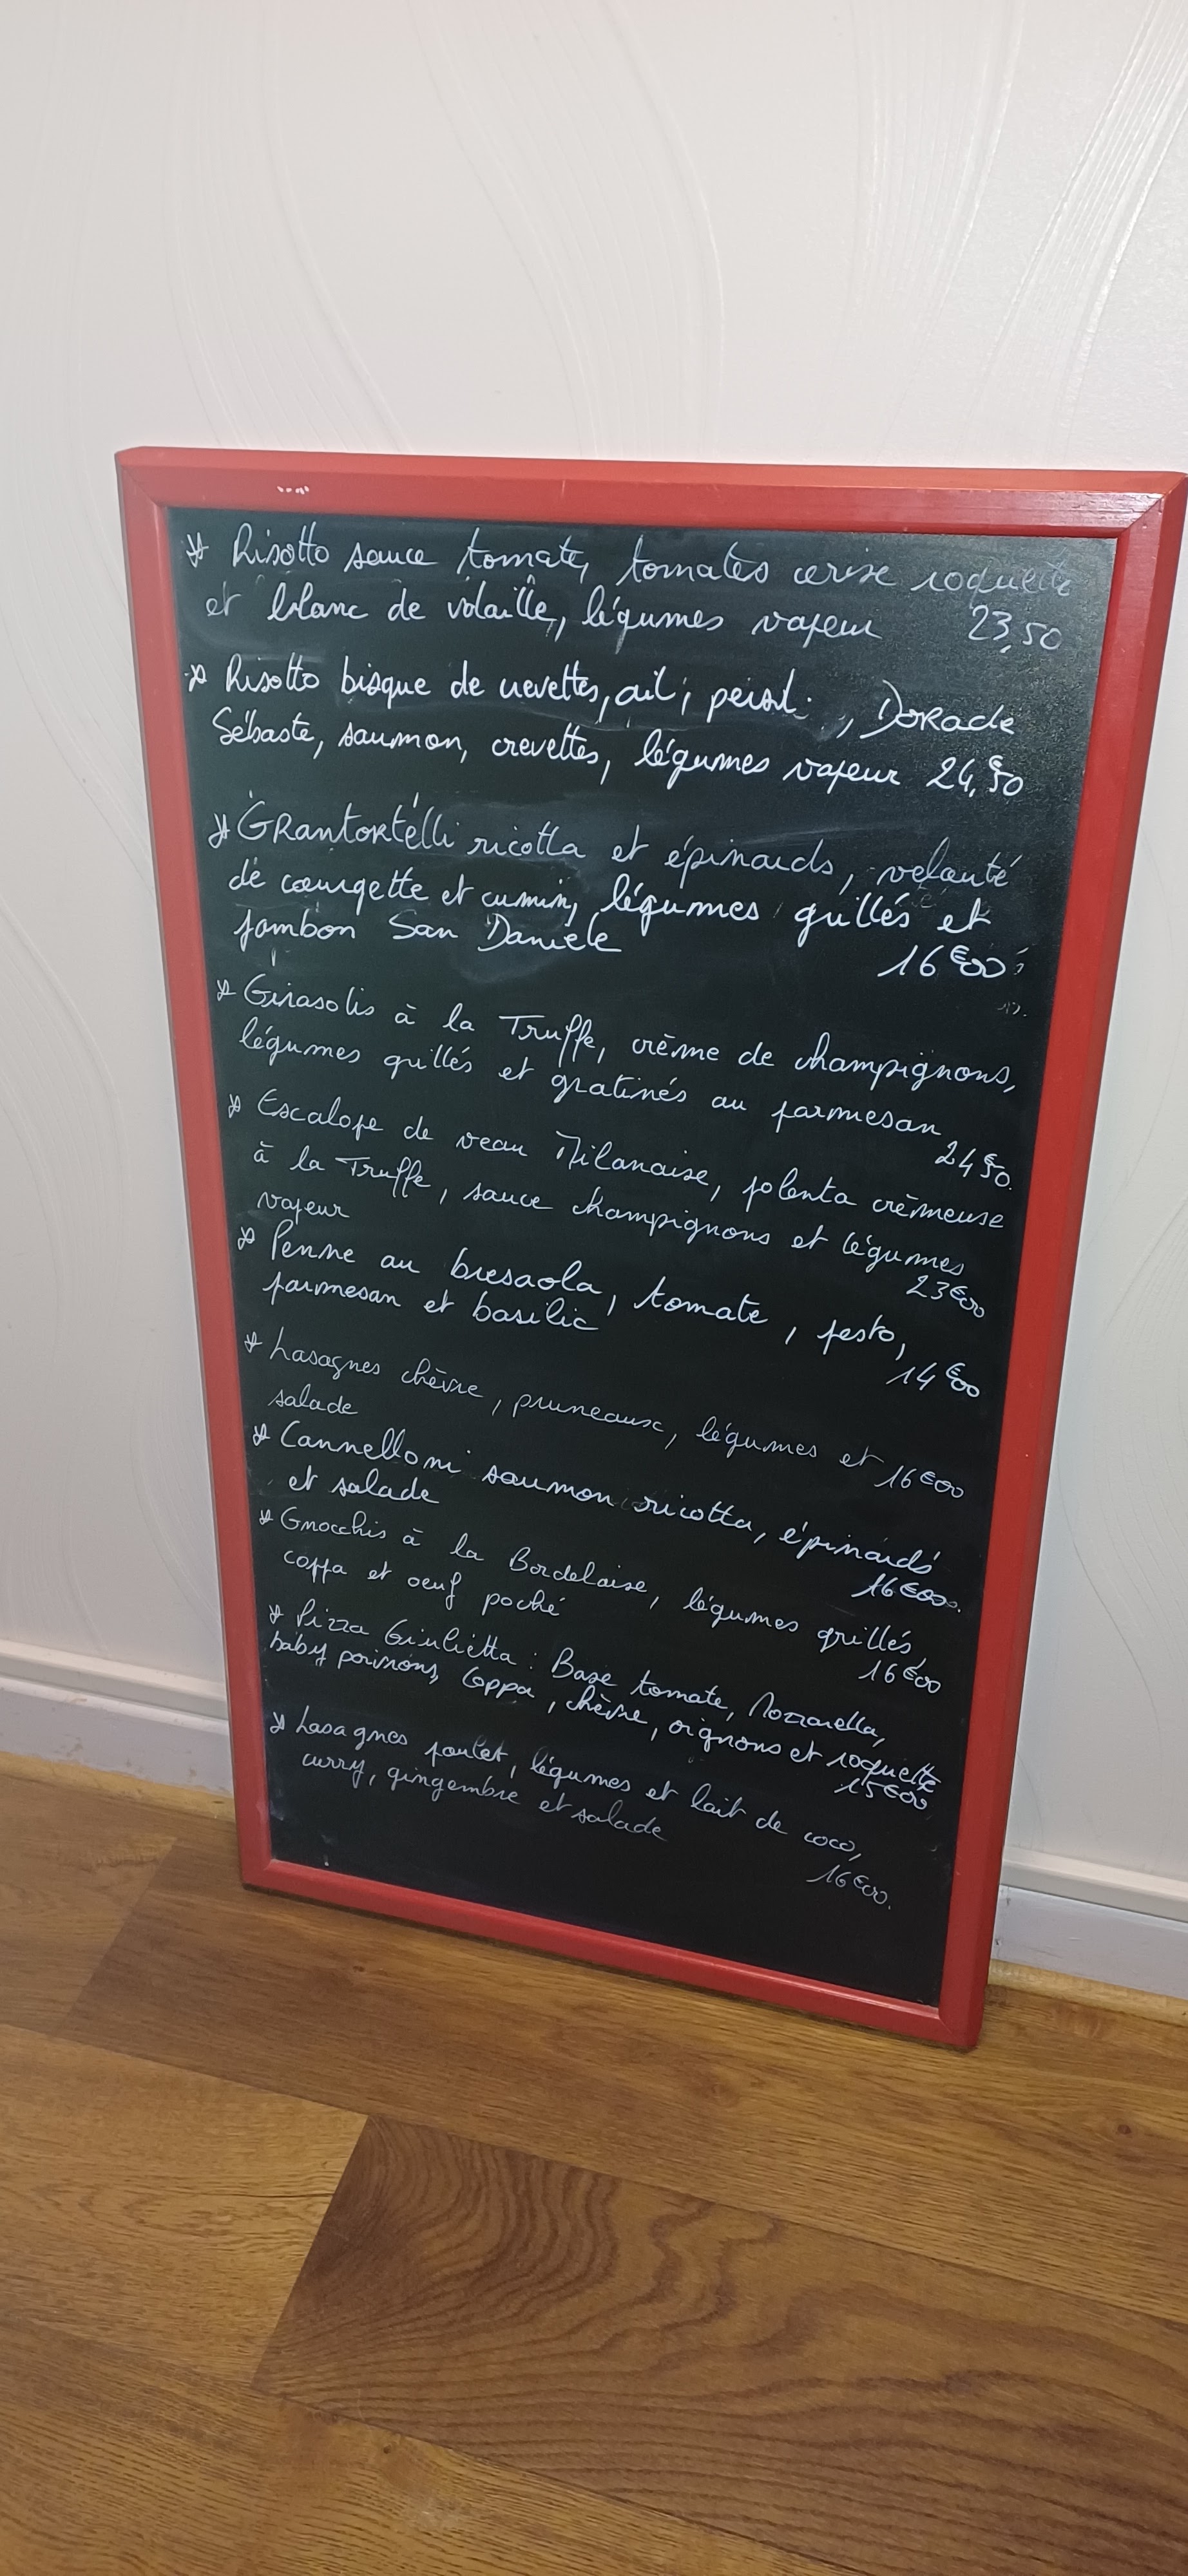 * Risotto sauce tomate, tomates cerise roquette
et blanc de volaille, légumes vapeur 23,50
* Risotto bisque de crevettes, ail, persil, Dorade
Sébaste, saumon, crevettes, légumes vapeur 24,€50
* GRantortelli ricotta et épinards, velouté
de courgette et cumin, légumes grillés et
jambon San Daniele 16€00
* Girasolis à la Truffe, crème de champignons,
légumes grillés et gratinés au parmesan 24€50
* Escalope de veau Milanaise, polenta crèmeuse
à la Truffe, sauce champignons et légumes
vapeur 23€00
* Penne au bresaola, tomate, pesto,
parmesan et basilic 14€00
* Lasagnes chèvre, pruneaux, légumes et
salade 16€00
* Cannelloni saumon ricotta, épinards
et salade 16€00
* Gnocchis à la Bordelaise, légumes grillés,
coppa et oeuf poché 16€00
* Pizza Giulietta : Base tomate, Mozzarella,
baby poivrons, Coppa, chèvre, oignons et roquette
15€00
* Lasagnes poulet, légumes et lait de coco,
curry, gingembre et salade 16€00.